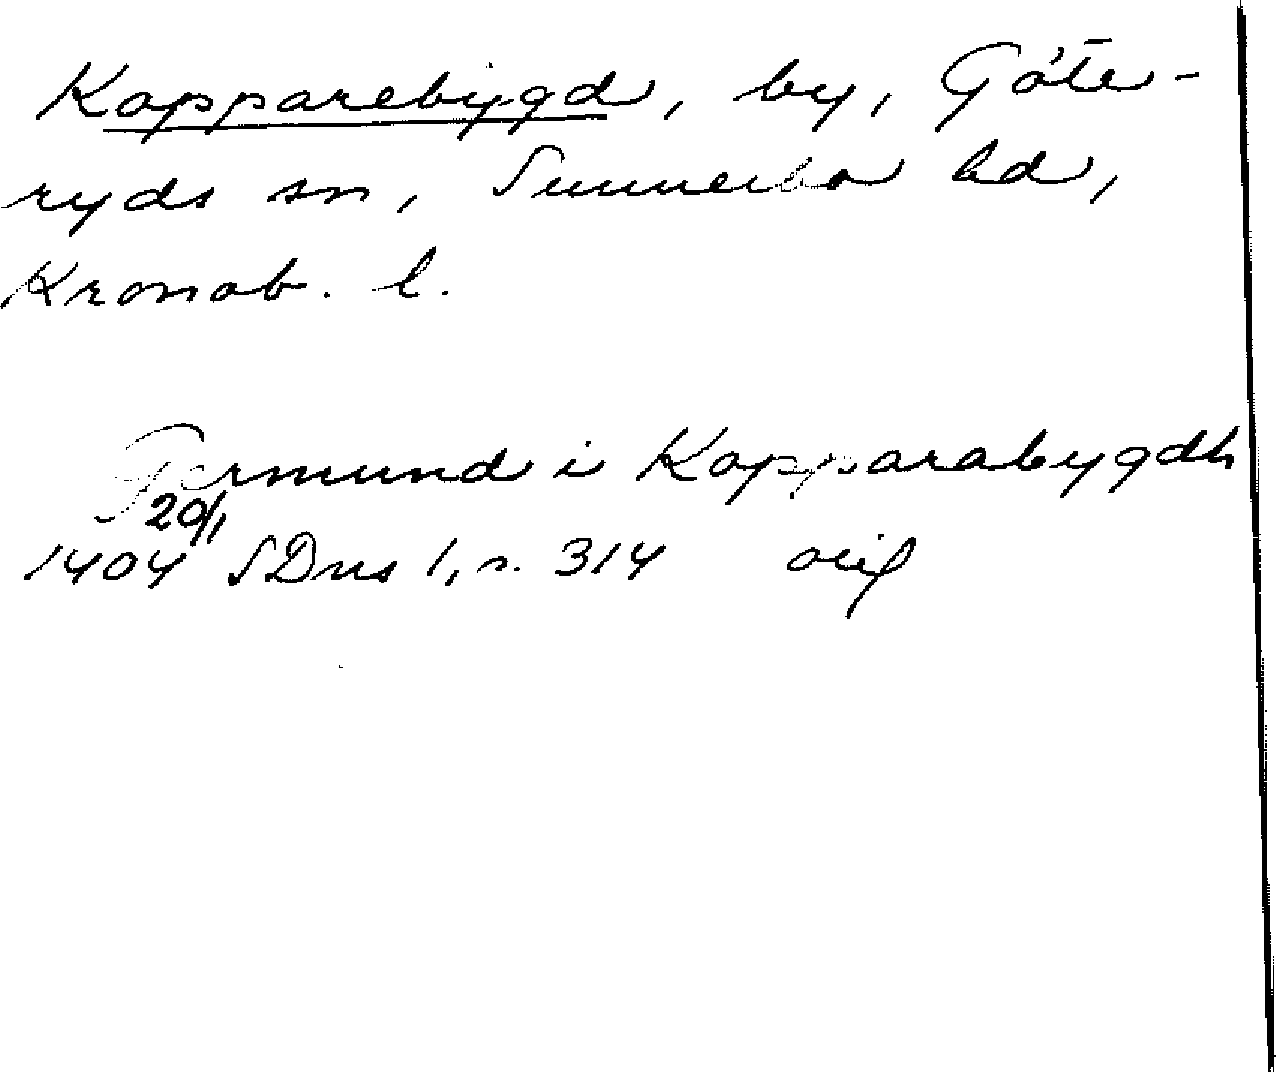 Kopparebygd, by, Göte-
ryds sn, Sunnerbo hd,
Kronob. l.
Germund i Kopparabygdh
20/1
1404 SDns 1, s. 314 orig